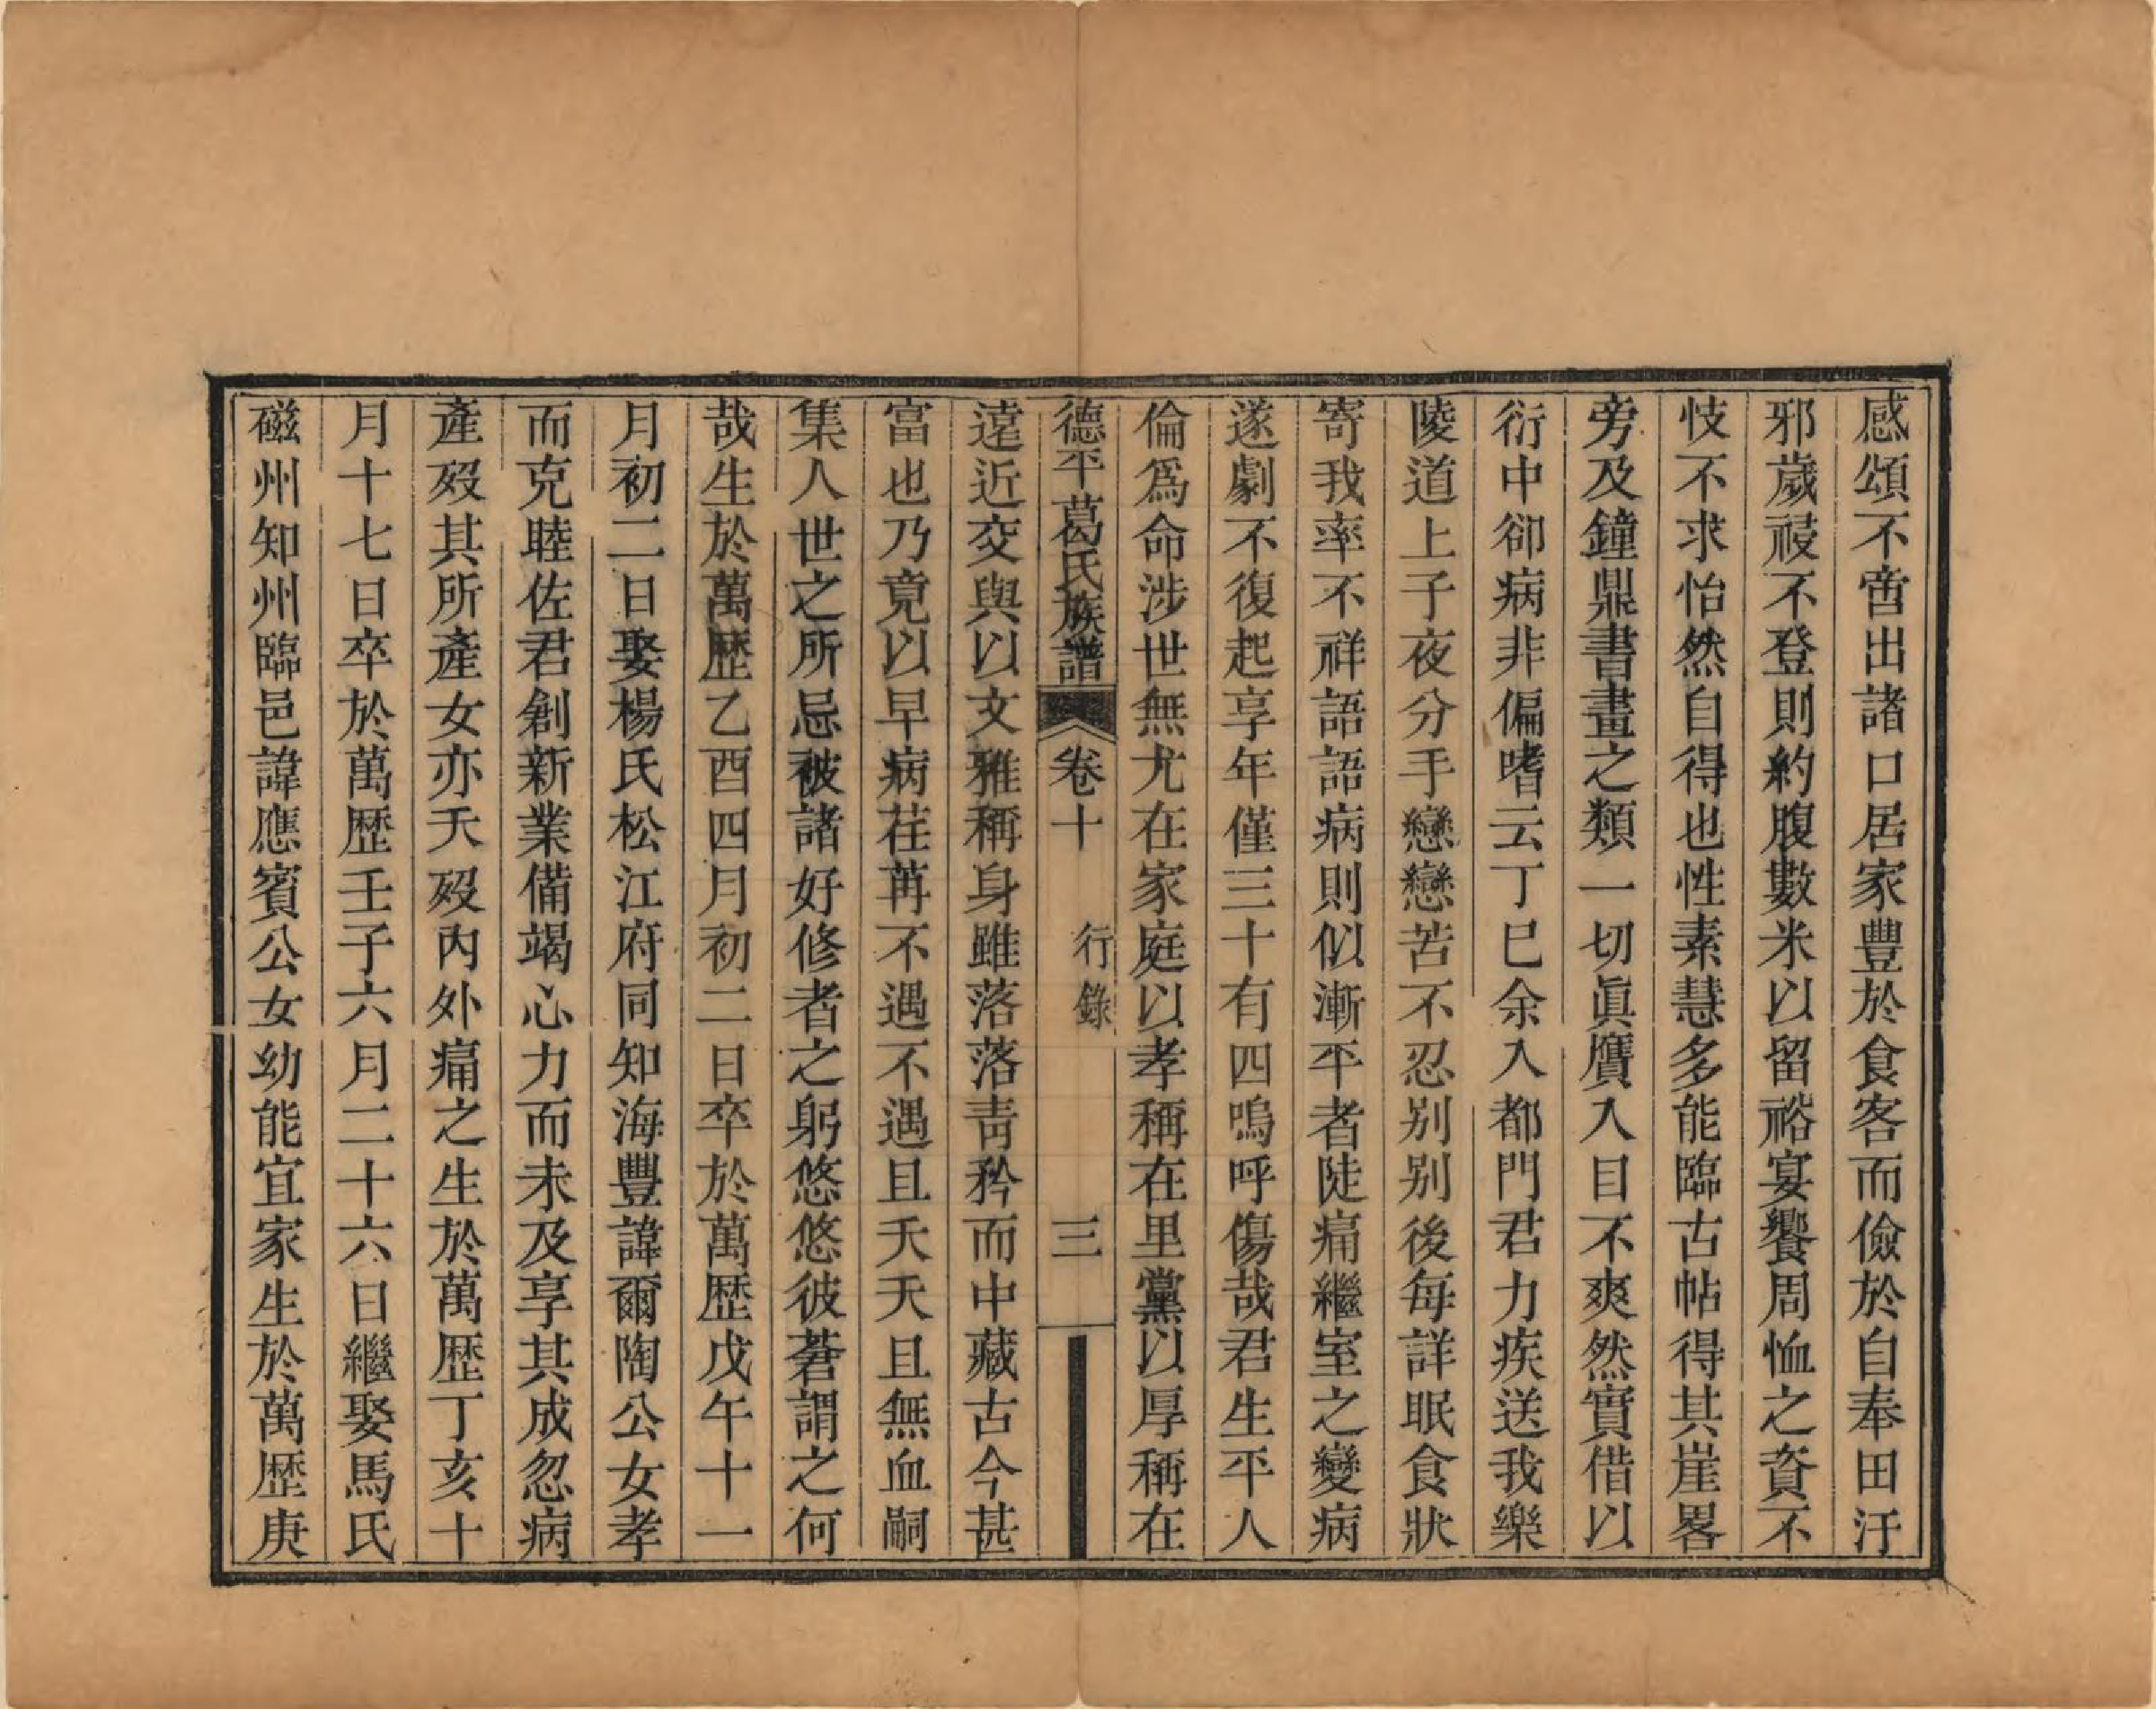 感頌不啻出諸口居家豐於食客而儉於自奉田汙
邪歲祲不登則約腹數米以留裕宴饗周恤之資不
忮不求怡然自得也性素慧多能臨古帖得其崖畧
旁及鐘鼎書畫之類一切眞贋入目不爽然實借以
衍中卻病非偏嗜云丁巳余入都門君力疾送我樂
陵道上子夜分手戀戀苦不忍別別後每詳眠食狀
寄我率不祥語語病則似漸平者陡痛繼室之變病
遂劇不復起享年僅三十有四嗚呼傷哉君生平人
倫爲命涉世無尤在家庭以孝稱在里黨以厚稱在
德平葛氏族譜 卷十 行錄 三
遠近交與以文雅稱身雖落落靑衿而中藏古今甚
富也乃竟以早病荏苒不遇不遇且夭夭且無血嗣
集人世之所忌被諸好修者之躬悠悠彼蒼謂之何
哉生於萬歷乙酉四月初二日卒於萬歷戊午十一
月初二日娶楊氏松江府同知海豐諱爾陶公女孝
而克睦佐君創新業備竭心力而未及享其成忽病
產歿其所產女亦夭歿內外痛之生於萬歷丁亥十
月十七日卒於萬歷壬子六月二十六日繼娶馬氏
磁州知州臨邑諱應賓公女幼能宜家生於萬歷庚